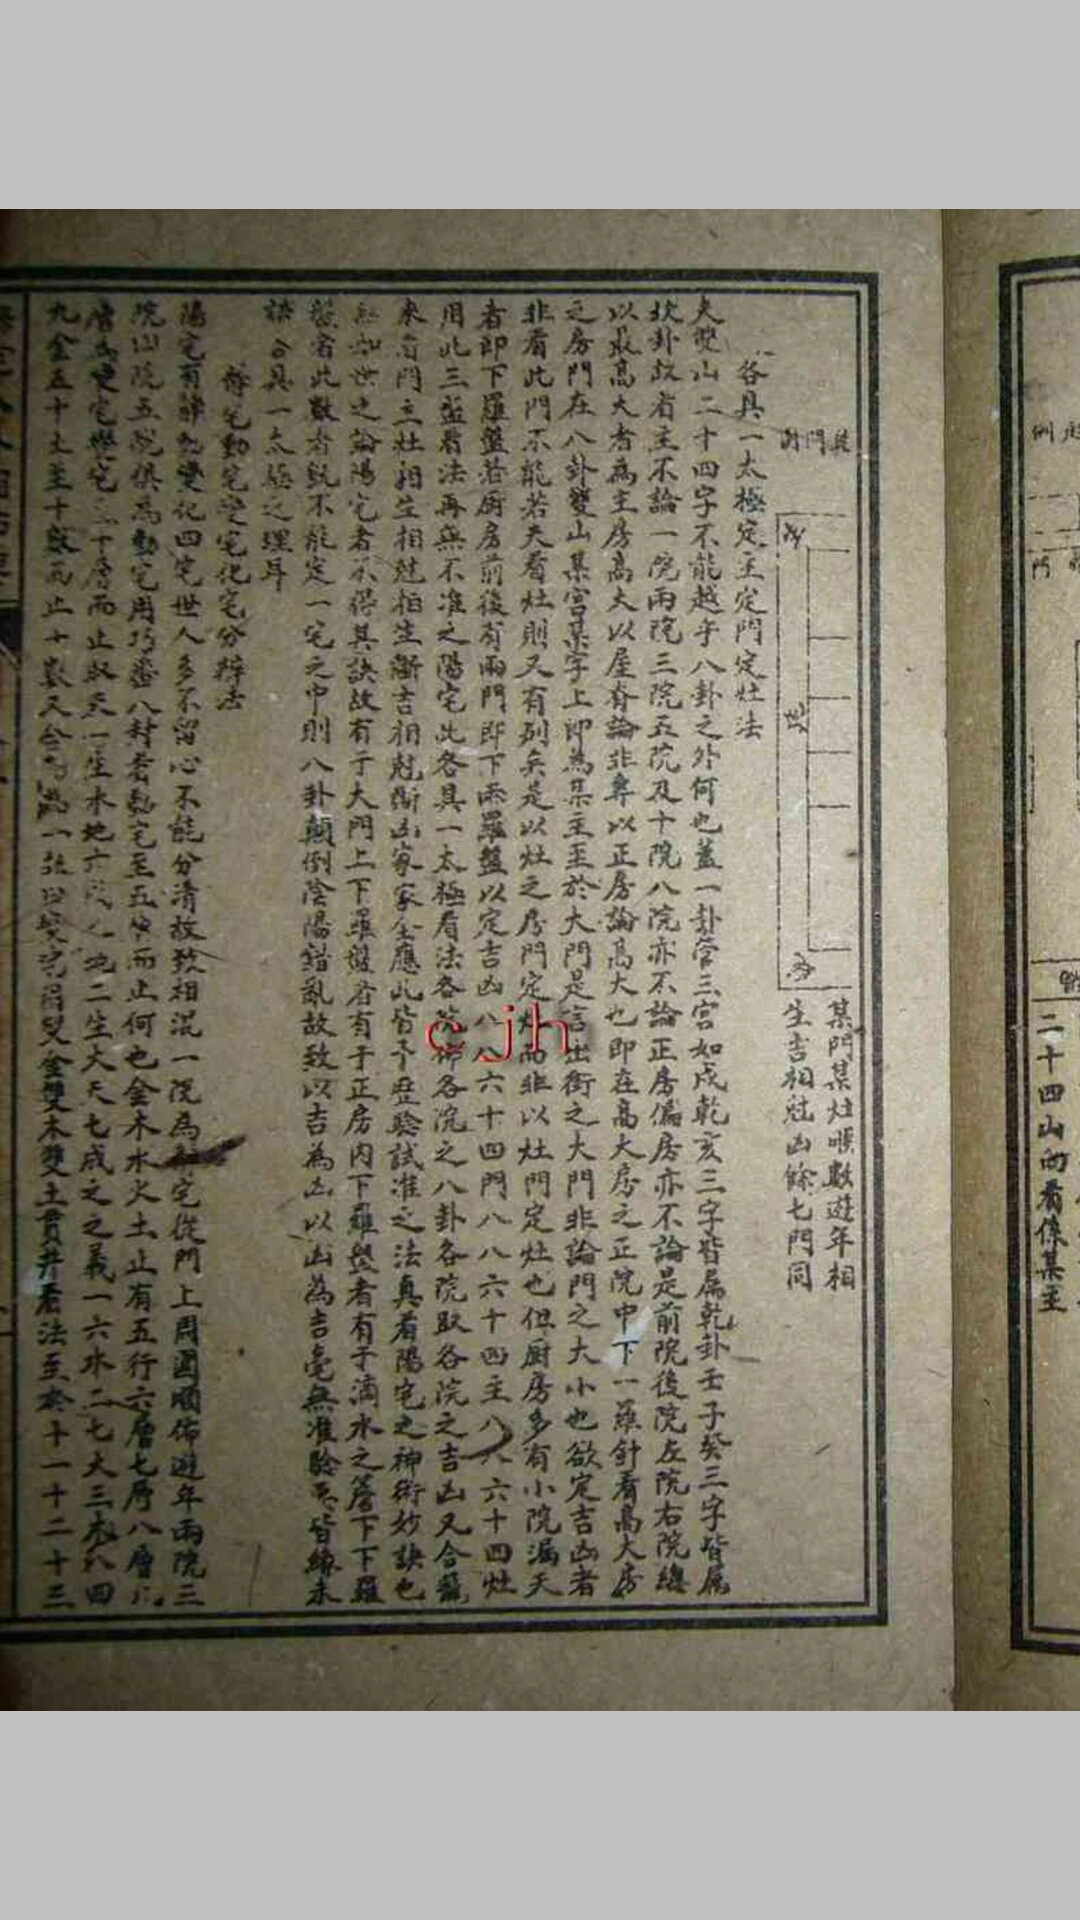 二十四山內看係某主
某門某灶順數遊年相
生吉相尅凶餘七門同
各具一太極定主定門定灶法
夫雙山二十四字不能越乎八卦之外何也蓋一卦管三宮如戌乾亥三字皆屬乾卦壬子癸三字皆屬
坎卦故看主不論一院兩院三院五院及十院八院亦不論正房偏房亦不論是前院後院左院右院總
以最高大者為主房高大以屋脊論非專以正房論高大也即在高大房之正院中下一羅針看高大房
之房門在八卦雙山某宮某字上即為某主至於大門是言出街之大門非論門之大小也欲定吉凶者
非看此門不能若夫看灶則又有別矣是以灶之房門定灶而非以灶門定灶也但厨房多有小院漏天
者即下羅盤若厨房前後有兩門即下兩羅盤以定吉凶八八六十四門八八六十四主八八六十四灶
用此三盤看法再無不准之陽宅此各具一太極看法各院佈各院之八卦各院取各院之吉凶又合龍
來看門主灶相生相尅相生斷吉相尅斷凶家家全應此皆予歷驗試准之法真看陽宅之神術妙訣也
無如世之論陽宅者不得其訣故有于大門上下羅盤者有于正房內下羅盤者有于滴水之簷下下羅
盤者此數者既不能定一宅之中則八卦顛倒陰陽錯亂故致以吉為凶以凶為吉毫無准驗 皆緣未
訣各具一太極之理耳
靜宅動宅變宅化宅分辨法
陽宅有靜動變化四宅世人多不留心不能分清故致相混一院為靜宅從門上周圍順佈遊年兩院三
院四院五院俱為動宅用巧番八卦看動宅至五層而止何也金木水火土止有五行六層七層八層九
層為變宅變宅至十層而止取天一生水地六成之地二生火天七成之之義一六水二七火三木八四
九金五十土至十數而止十數又合 為一 雙金雙木雙土貫井看法至於十一十二十三